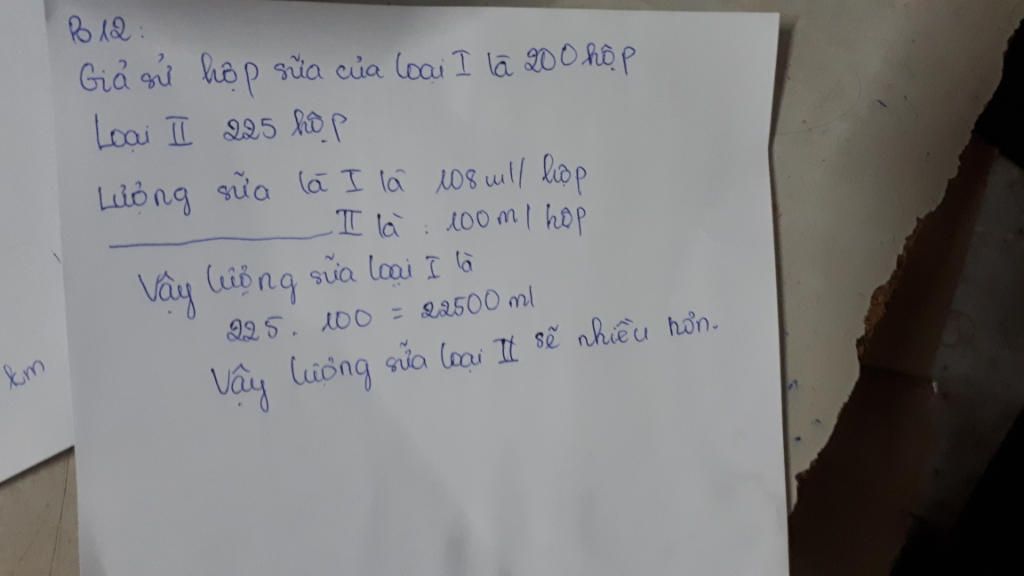 B12:
Giả sử hộp sữa của loại I là 200 hộp
Loại II 225 hộp
Lượng sữa là I là 108ml/ hộp
II là : 100ml hộp
Vậy lượng sữa loại I là
225. 100 = 22500 ml
Vậy lượng sữa loại II sẽ nhiều hơn.
km